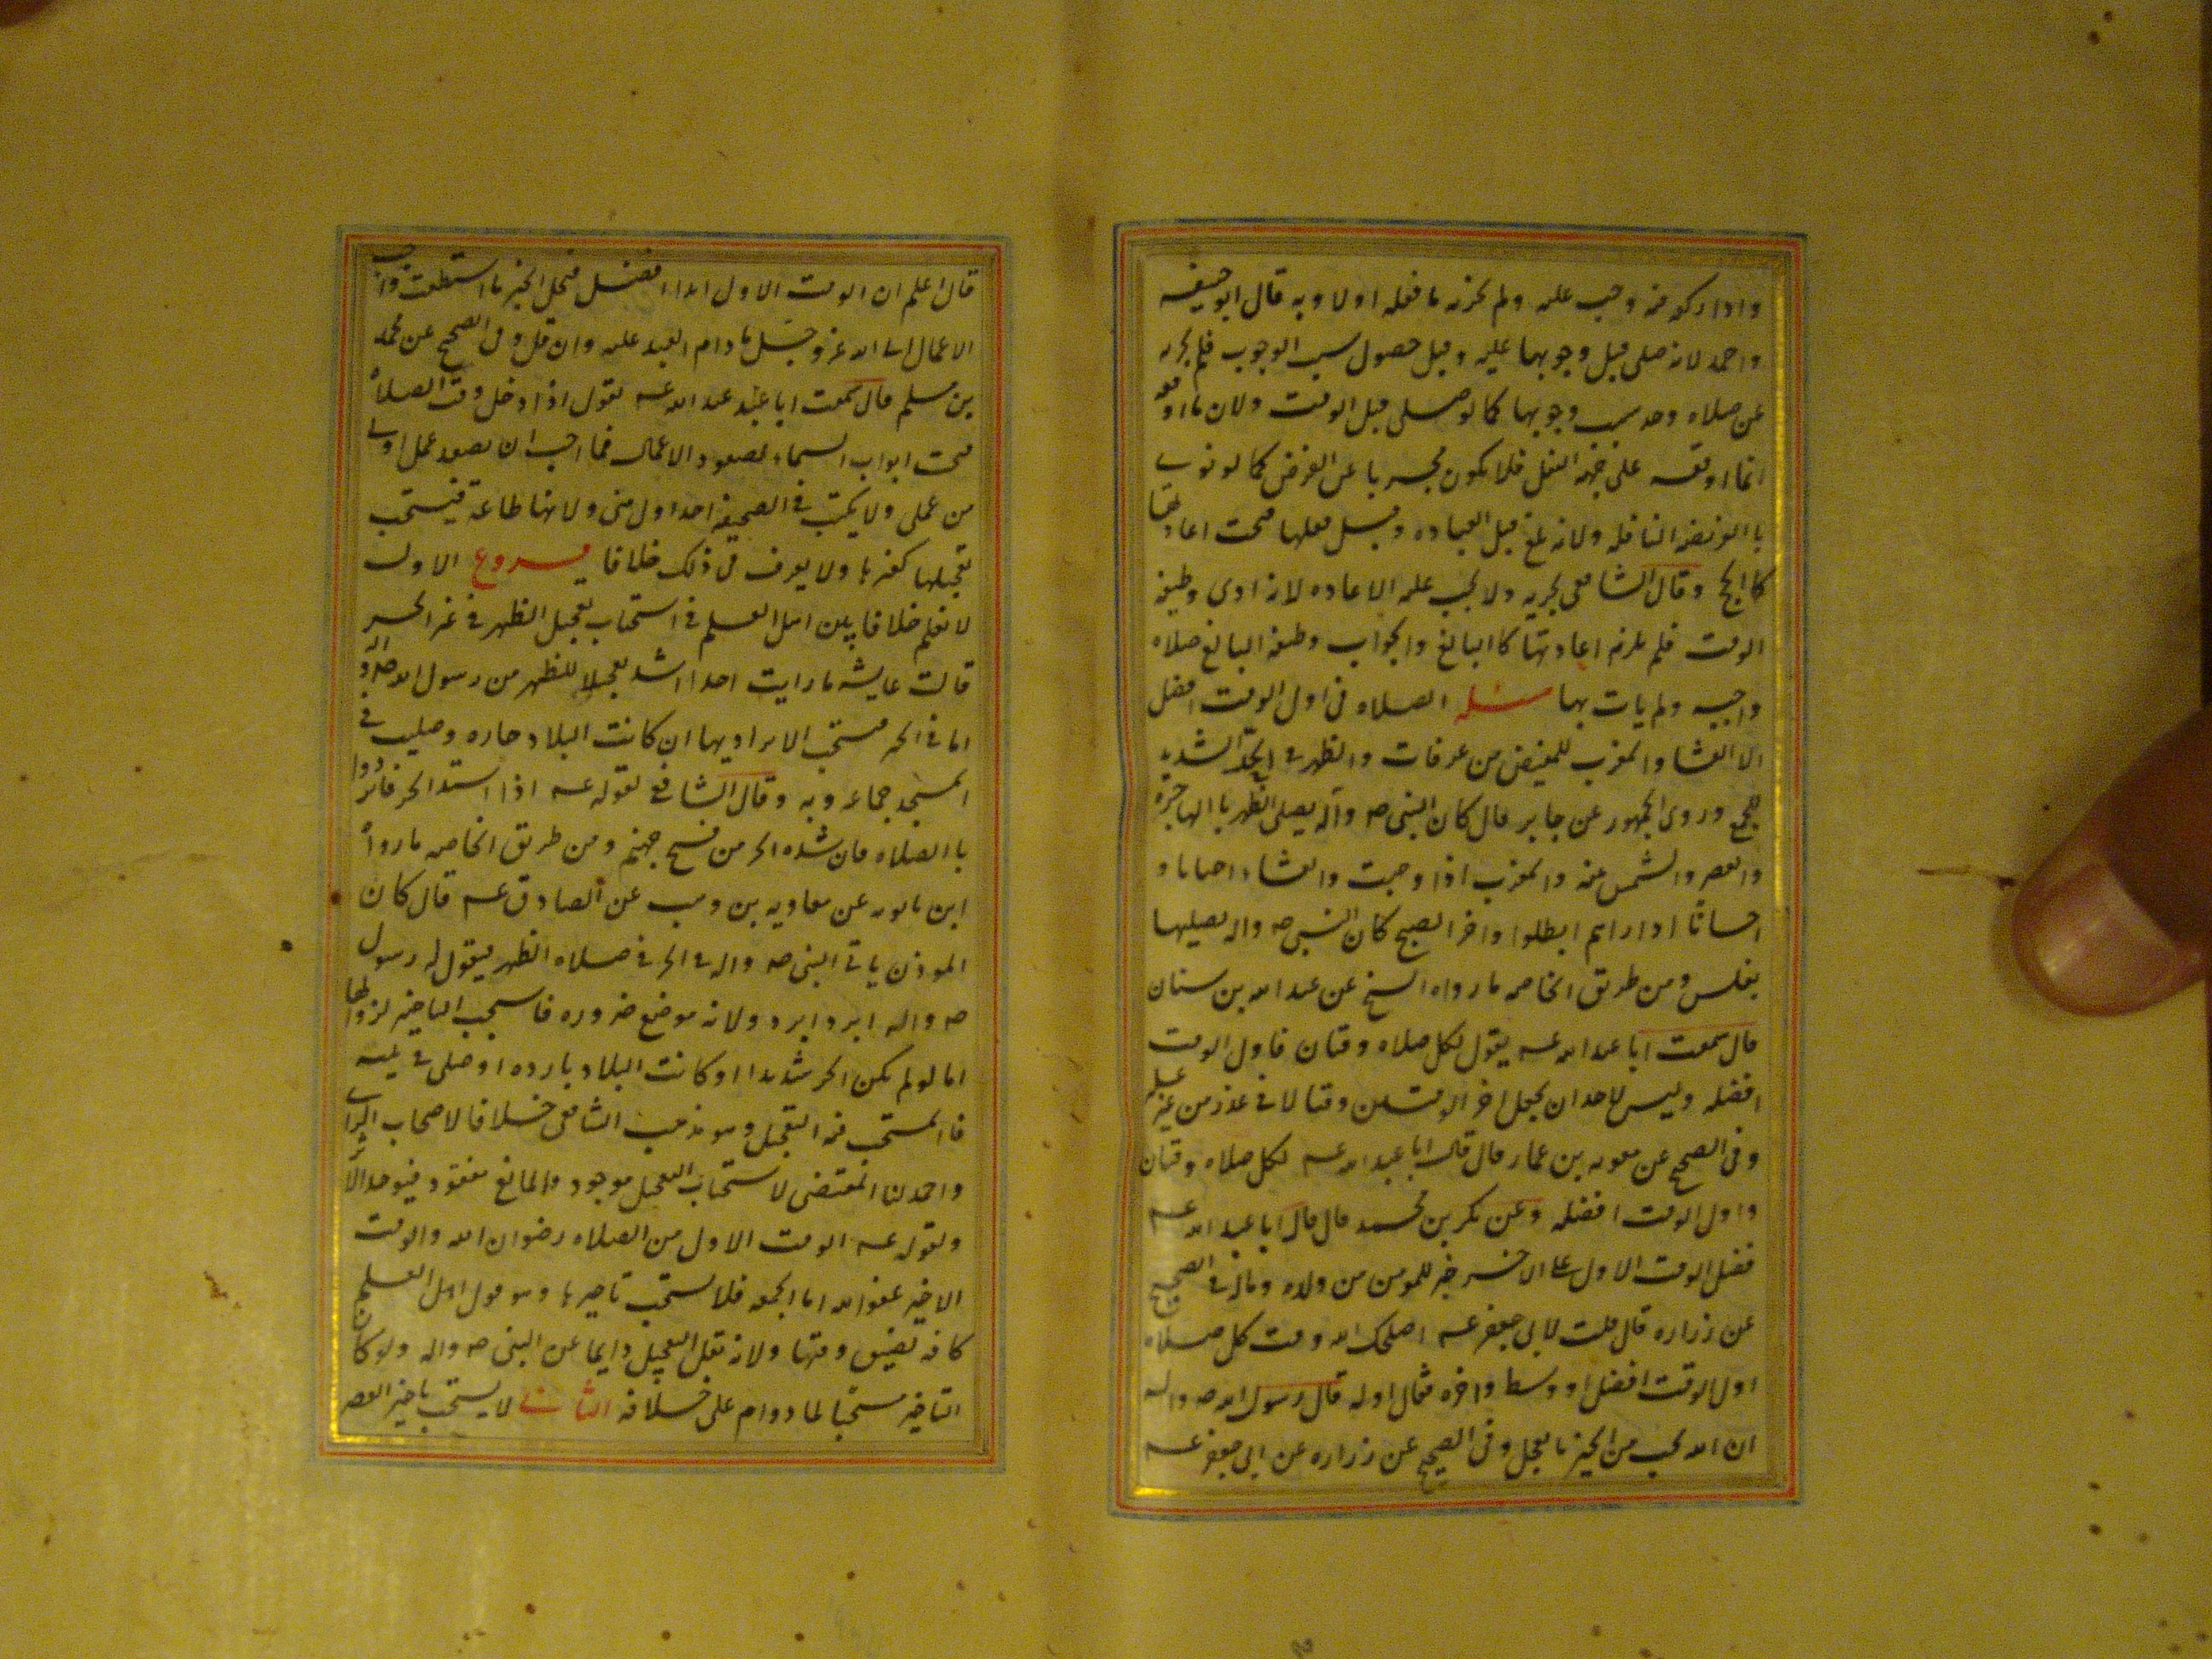 وادا ادركه منه وجب عليه ولم يجزيه ما فعله اولا وبه قال ابو حنيفه
واحمد لانه صلى قبل وجوبهما عليه وقبل حصول سبب الوجوب فلم يجزيه
عن صلاه وجد سبب وجوبها كما لو صلى قبل الوقت ولان ما اوقعه
انما اوقعه على جهه النفل فلا يكون مجزيا عن الفرض كما لو نوى
باالفريضه النافله ولانه بلغ قبل العباده وقبل فعلها صحت اعادتها
كا الحج وقال الشافعى يجزيه ولا يجب عليه الاعاده لانه ادى وظيفه
الوقت فلم يلزمه اعادتها كا البالغ والجواب وظيفه البالغ صلاه
واجبه ولم يات بها مسئله الصلاه فى اول الوقت افضل
الا العشا والمغرب للمفيض من عرفات والظهر فى الحرّ الشديد
للجمع وروى الجمهور عن جابر قال كان النبى صه وآله يصلى الظهر با الهاجره
والعصر والشمس نقيه والمغرب اذا وجبت والعشاء احيانا و
احيانًا ادا راهم ابطلوا واخر الصبح كان النبى صه واله يصليها
بغلس ومن طريق الخاصه ما رواه الشيخ عن عبد الله بن سنان
قال سمعت ابا عبد الله عسه يقول لكل صلاه وقتان فاول الوقت
افضله وليس لاحد ان يجعل اخر الوقتين وقتا الا فى عذر من غير عله
وفى الصحيح عن معويه بن عمار قال قال ابا عبد الله عسه لكل صلاه وقتان
واول الوقت افضله وعن بكر بن محمد قال قال ابا عبد الله عسه
فضل الوقت الاول على الاخر خير للمومن من ولده وماله فى الصحيح
عن زراره قال قلت لابى جعفر عسه اصلحك الله وقت كل صلاه
اول الوقت افضل او وسطه واخره فقال اوله قال رسول الله صه واله
ان الله يحب من الخير ما يعجل وفى الصحيح عن زراره عن ابى جعفر عسه
قال اعلم ان الوقت الاول ابدا افضل فعجل الخير ما استطعت واحب
الاعمال الى الله عز وجل ما دام العبد عليه وان قل وفى الصحيح عن محمد
بن مسلم قال سمعت ابا عبد الله عسه يقول اذا دخل وقت الصلاه
فتحت ابواب السماء لصعود الاعمال فما احب ان يصعد عمل اولى
من عملى ولا يكتب فى الصحيفه احد اول منى ولانها طاعة فيستحب
تعجيلها كغيرها ولا يعرف فى ذلك خلافا فروع الاول
لا نعلم خلافا بين اهل العلم فى استحباب تعجيل الظهر فى غير الحر
قالت عايشه ما رايت احدا اشد تعجيلا للظهر من رسول الله صه واله
اما فى الحر فيستحب الابراد بها ان كانت البلاد حاره وصليت فى
المسجد جماعه وبه وقال الشافعى لقوله عسه اذا اشتد الحر فابردوا
باالصلاه فان شده الحر من فيح جهنم ومن طريق الخاصه ما رواه
ابن بابويه عن معاويه بن وهب عن الصادق عسه قال كان
الموذن ياتى النبى صه واله فى الحر فى صلاه الظهر فيقول له رسول
صه واله ابرد ابرد ولانه موضع ضروره فاستحب التاخير لزوالها
اما لو لم يكن الحر شديدا او كانت البلاد بارده او صلى فى بيته
فا المستحب فيه التعجيل وهو مذهب الشافعى خلافا لاصحاب الراى
واحمد لنا المقتضى لاستحباب التعجيل موجود والمانع مفقود فيوجد الاثر
ولقوله عسه الوقت الاول من الصلاه رضوان الله والوقت
الاخير عفو الله اما الجمعه فلا يستحب تاخيرها وهو قول اهل العلم
كافه لضيق وقتها ولانه نقل التعجيل دايما عن النبى صه واله ولو كان
التاخير مستحبا لما دوام على خلافه الثانى لا يستحب تاخير العصر